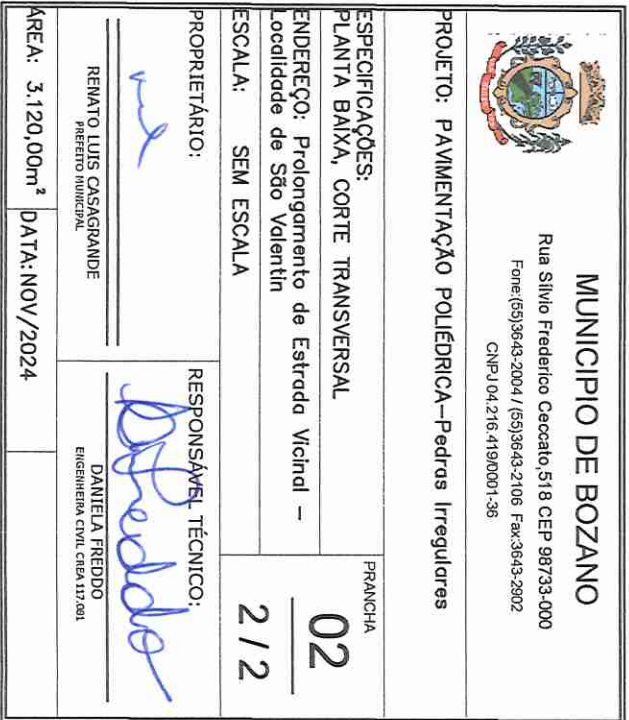 MUNICIPIO DE BOZANO
Rua Silvio Frederico Ceccato,518 CEP 98733-000
Fone:(55)3643-2004 / (55)3643-2106 Fax:3643-2902
CNPJ 04.216.419/0001-36
PROJETO: PAVIMENTAÇÃO POLIÉDRICA-Pedras Irregulares
ESPECIFICAÇÕES:
PLANTA BAIXA, CORTE TRANSVERSAL
PRANCHA
02
2 / 2
ENDEREÇO: Prolongamento de Estrada Vicinal -
Localidade de São Valentin
ESCALA: SEM ESCALA
PROPRIETÁRIO:
RENATO LUIS CASAGRANDE
PREFEITO MUNICIPAL
RESPONSÁVEL TÉCNICO:
DANIELA FREDDO
ENGENHEIRA CIVIL CREA 117.001
ÁREA: 3.120,00m²
DATA: NOV/2024